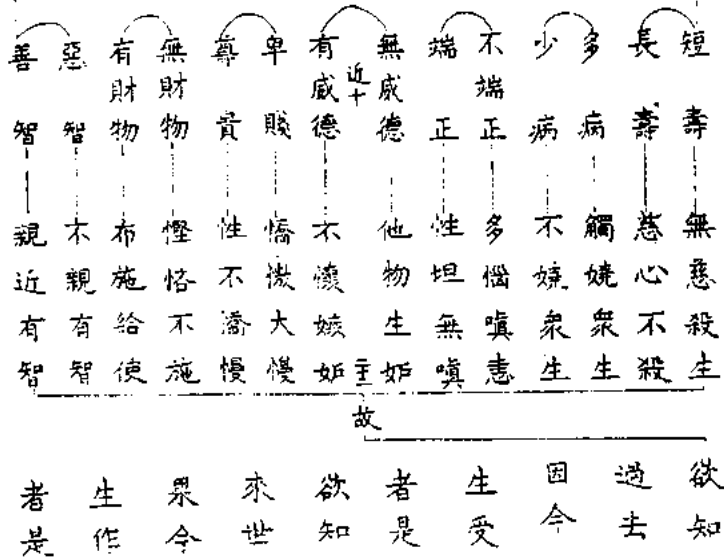 短壽 無慈殺生
長壽 慈心不殺
多病 觸嬈衆生
少病 不嬈衆生
不端正 多惱嗔恚
端正 性坦無嗔
無威德 他物生妒
近十
主
有威德 不懷嫉妒
卑賤 憍慠大慢
尊貴 性不憍慢
無財物 慳恪不施
有財物 布施給使
惡智 不親有智
善智 親近有智
故
欲知
過去
因今
生受
者是
欲知
來世
果今
生作
者是